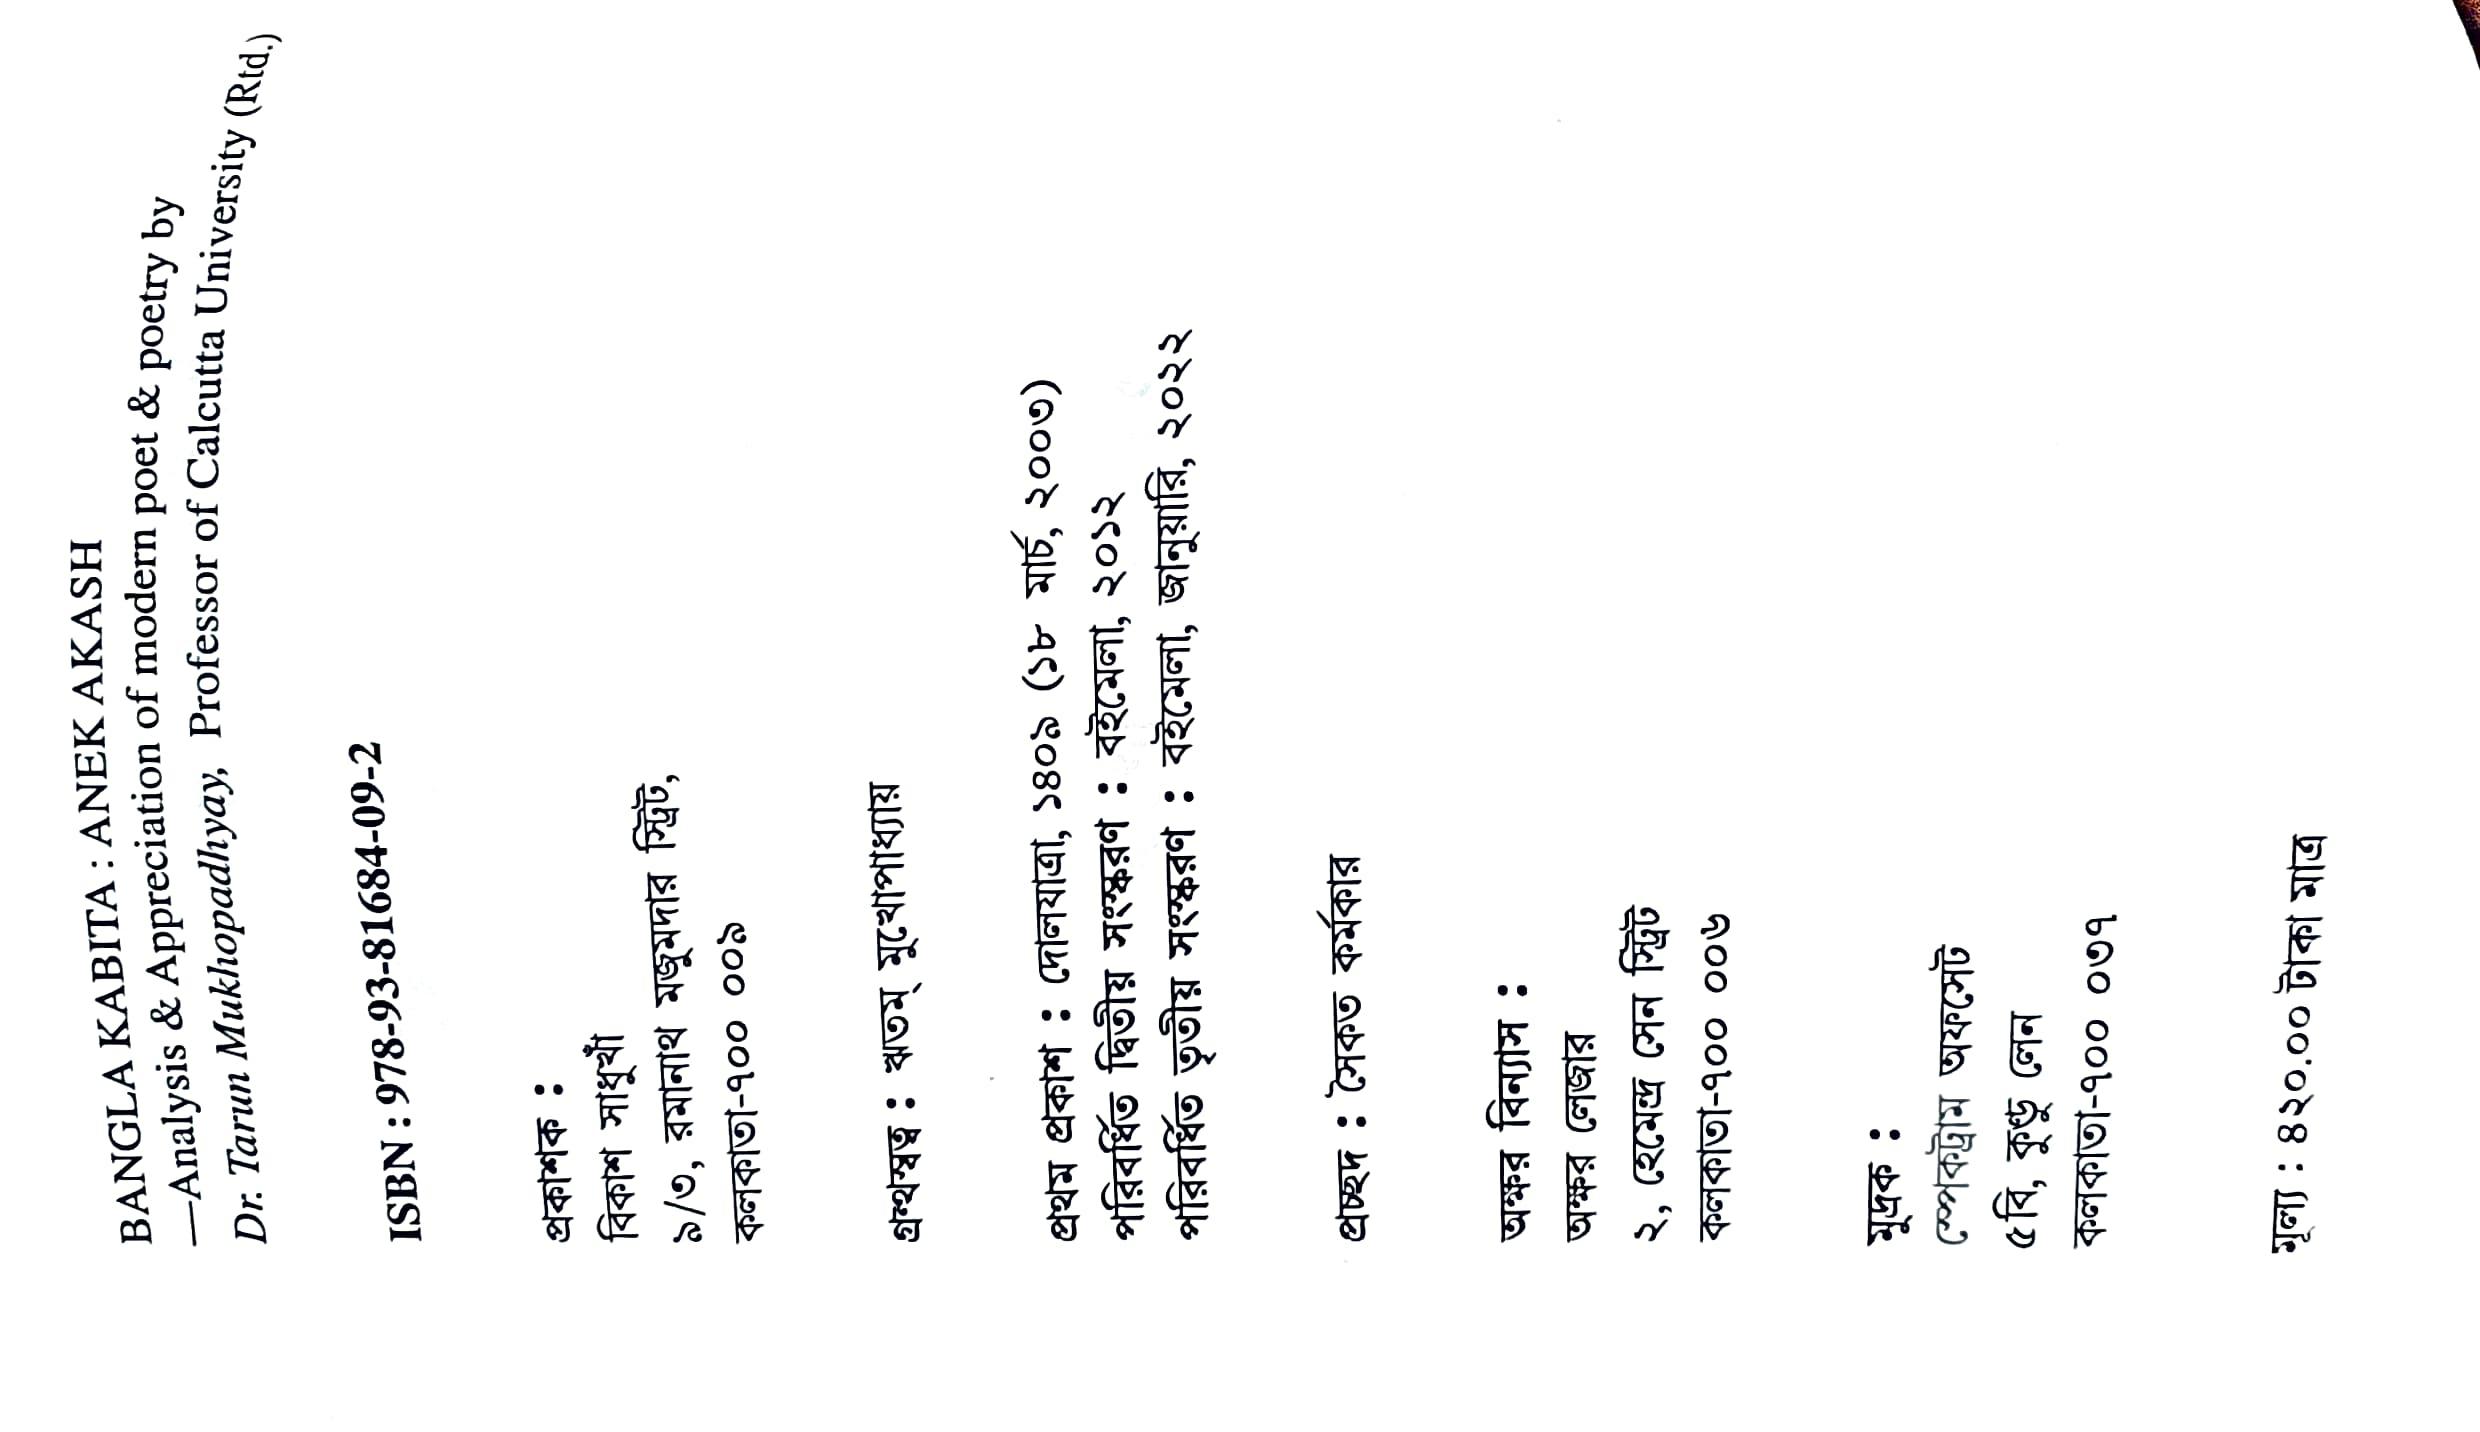 BANGLA KABITA : ANEK AKASH
—Analysis & Appreciation of modern poet & poetry by
Dr. Tarun Mukhopadhyay, Professor of Calcutta University (Rtd.)
ISBN : 978-93-81684-09-2
প্রকাশক :
বিকাশ সাধুখাঁ
৯/৩, রমানাথ মজুমদার স্ট্রিট,
কলকাতা-৭০০ ০০৯
গ্রন্থস্বত্ব : ঋতম্ মুখোপাধ্যায়
প্রথম প্রকাশ : দোলযাত্রা, ১৪০৯ (১৮ মার্চ, ২০০৩)
পরিবর্ধিত দ্বিতীয় সংস্করণ : বইমেলা, ২০১২
পরিবর্ধিত তৃতীয় সংস্করণ : বইমেলা, জানুয়ারি, ২০২২
প্রচ্ছদ : সৈকত কর্মকার
অক্ষর বিন্যাস :
অক্ষর লেজার
২, হেমেন্দ্র সেন স্ট্রিট
কলকাতা-৭০০ ০০৬
মুদ্রক :
স্পেকট্রাম অফসেট
৫বি, কুণ্ডু লেন
কলকাতা-৭০০ ০৩৭
মূল্য : ৪২০.০০ টাকা মাত্র